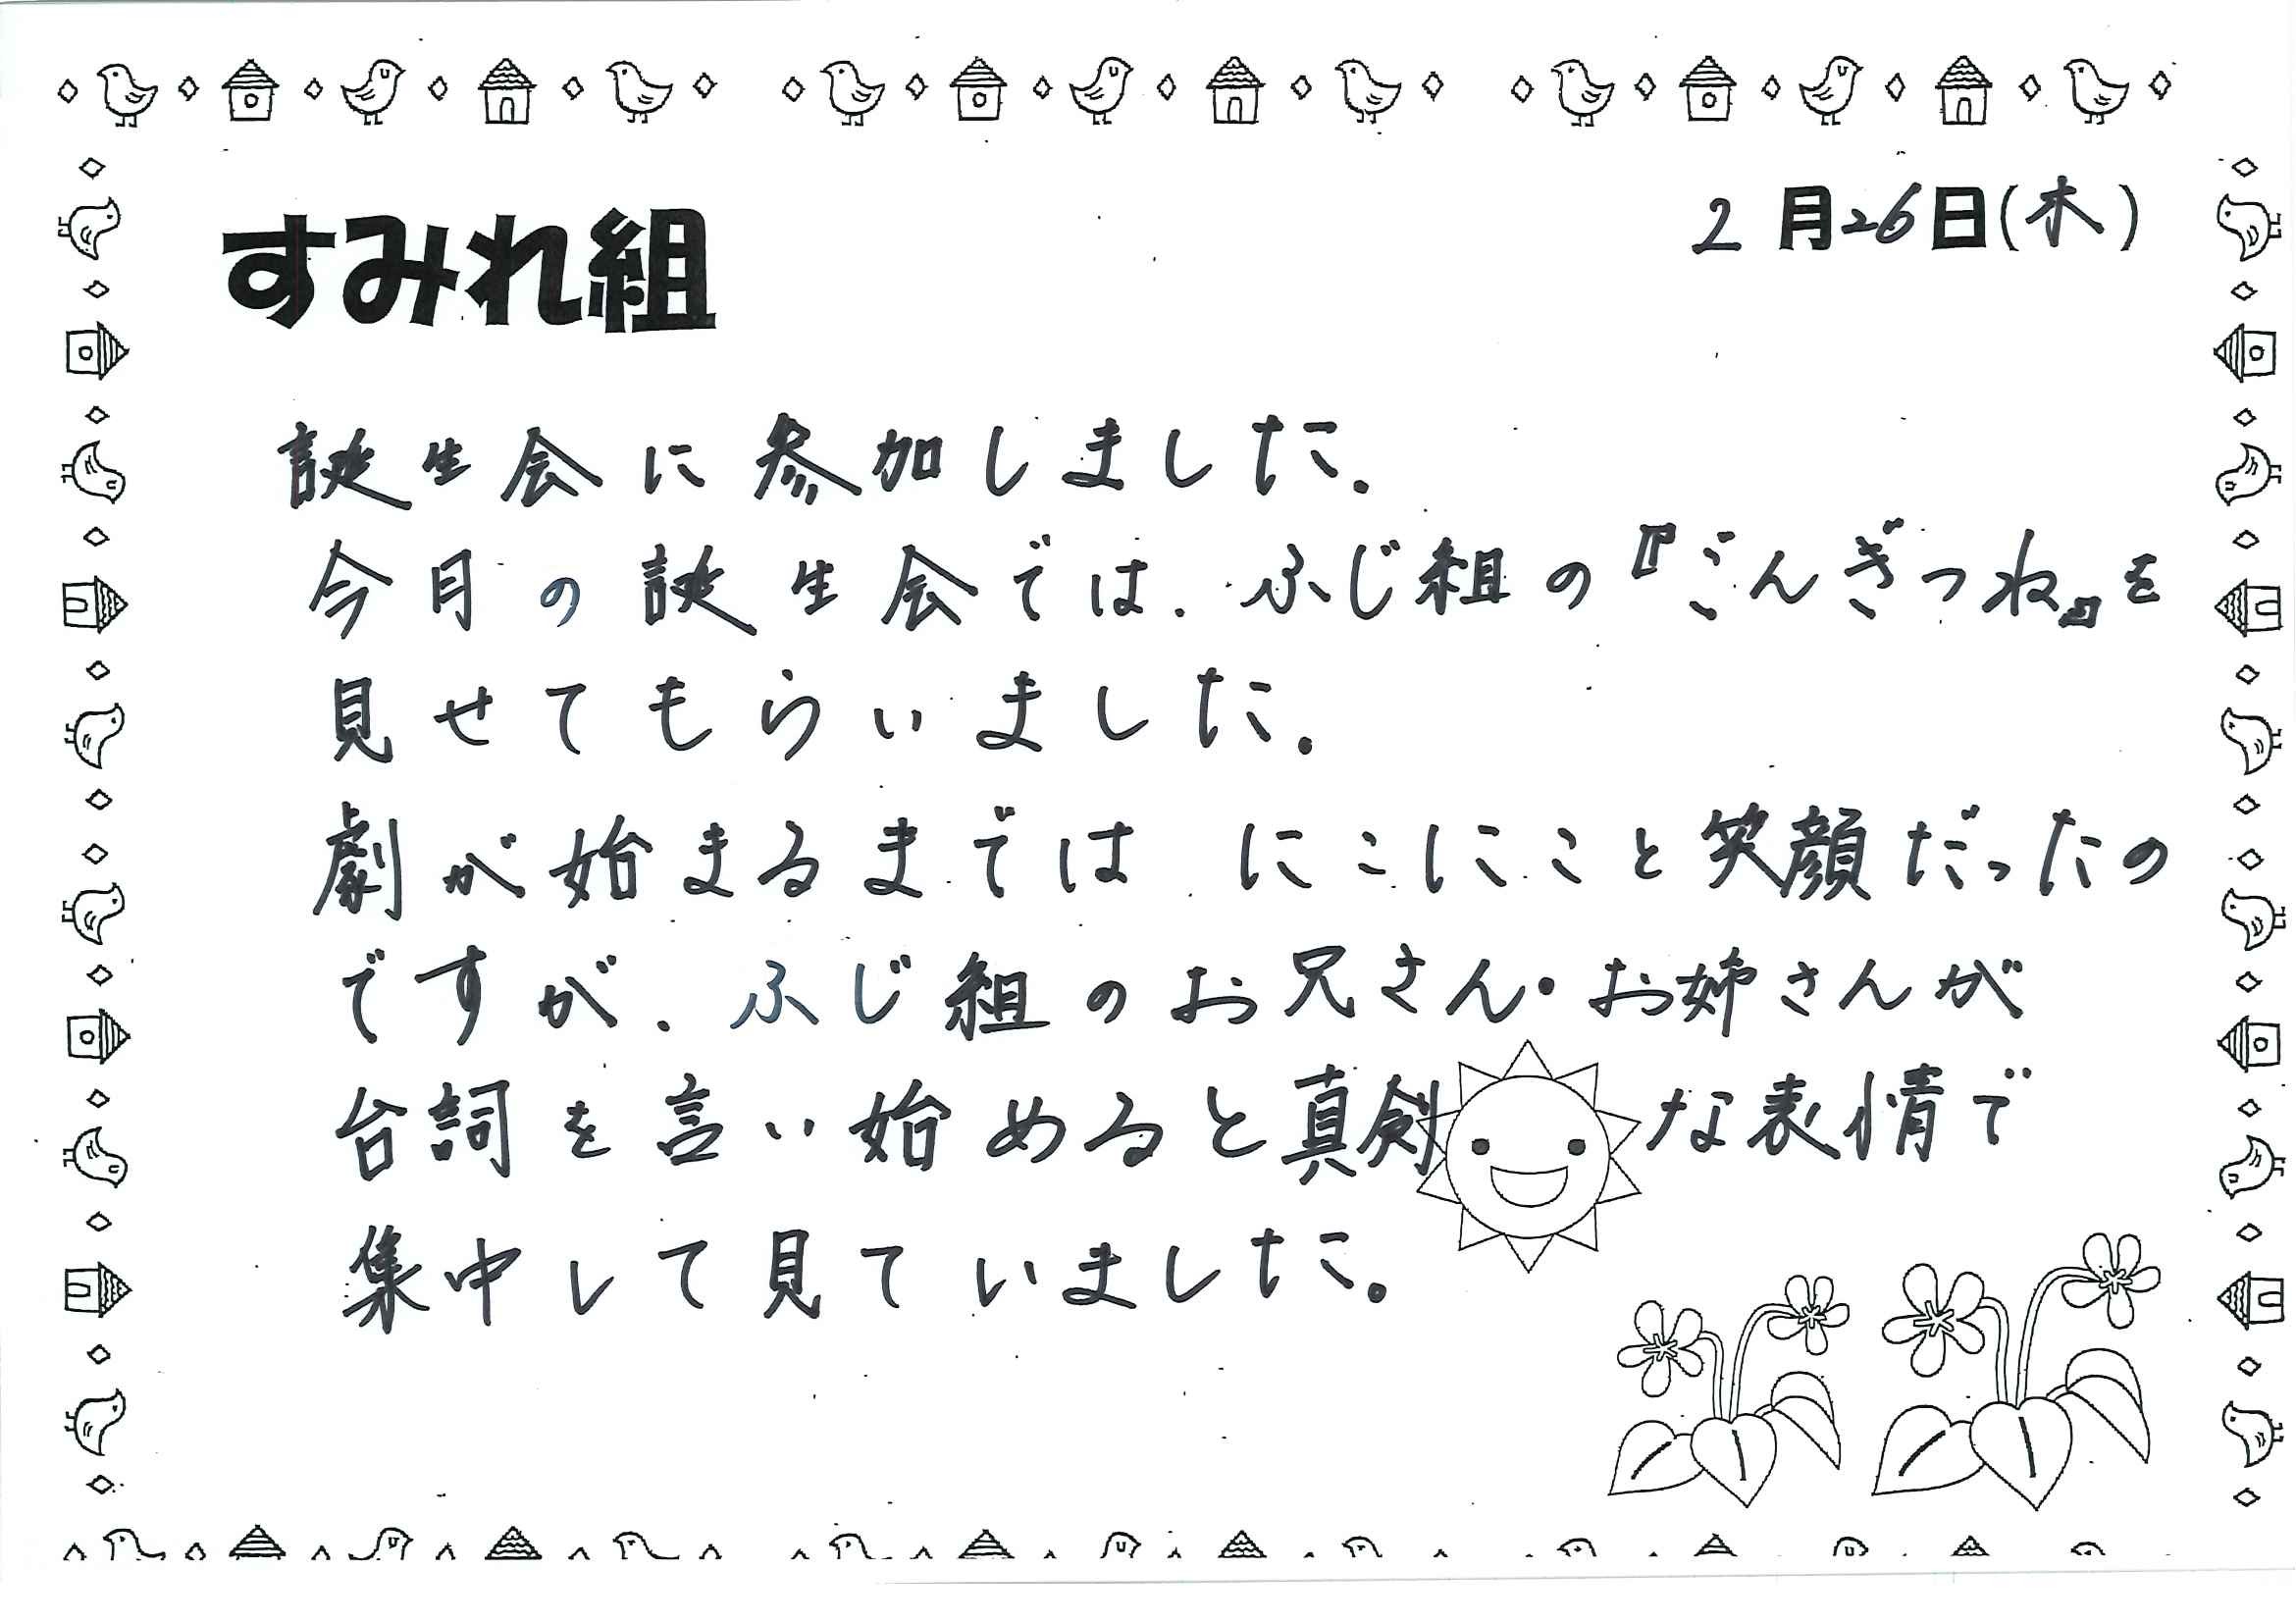 すみれ組
2月26日(木)
誕生会に参加しました。
今月の誕生会では、ふじ組の『ごんぎつね』を
見せてもらいました。
劇が始まるまでは にこにこと笑顔だったの
ですが、ふじ組のお兄さん・お姉さんが
台詞を言い始めると真剣な表情で
集中して見ていました。